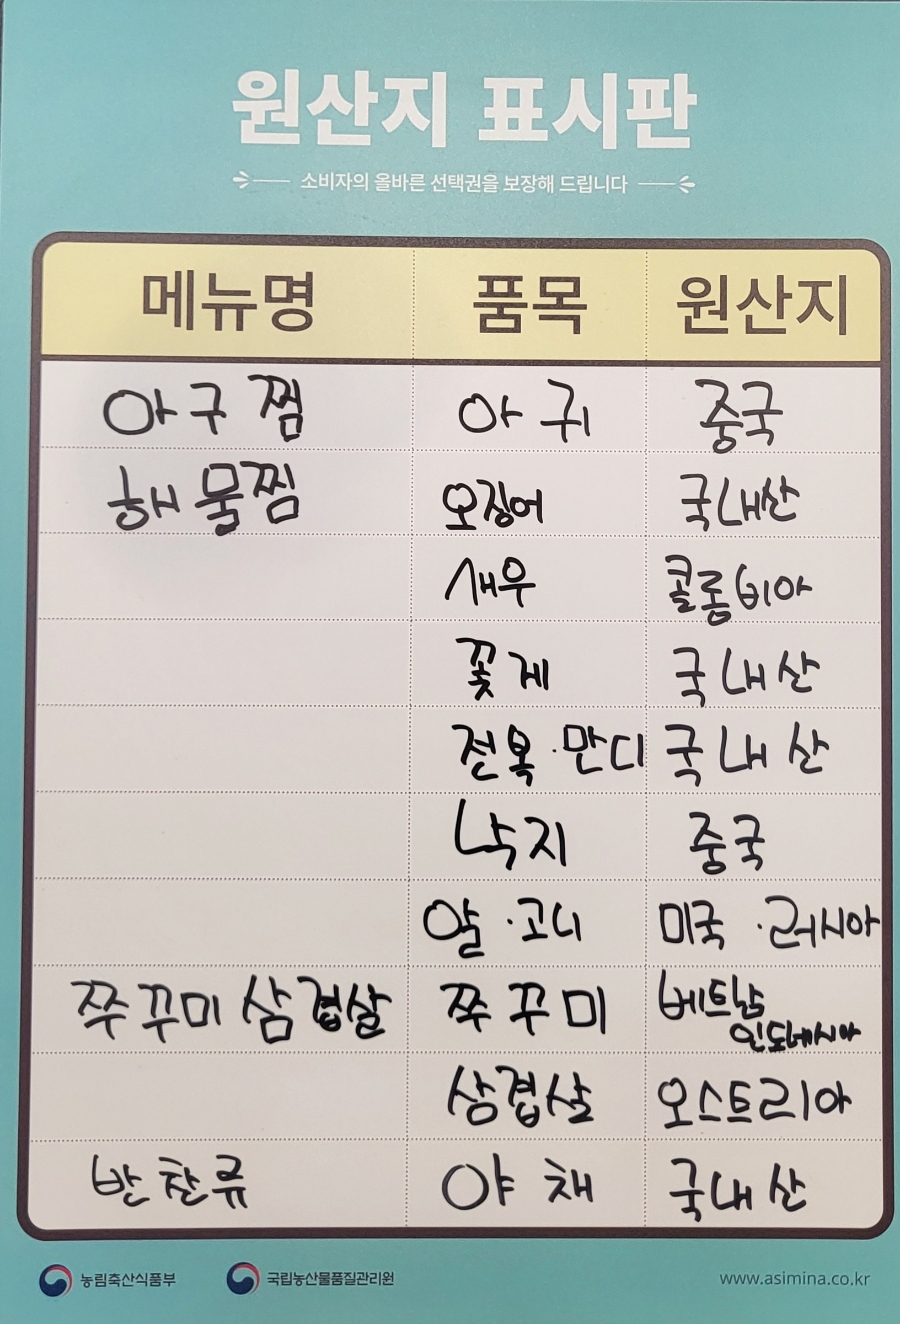 원산지 표시판
소비자의 올바른 선택권을 보장해 드립니다
메뉴명 품목 원산지
아구찜 아귀 중국
해물찜 오징어 국내산
새우 콜롬비아
꽃게 국내산
전복·만디 국내산
낙지 중국
알·고니 미국·러시아
쭈꾸미 삼겹살 쭈꾸미 베트남
인도네시아
삼겹살 오스트리아
반찬류 야채 국내산
농림축산식품부 국립농산물품질관리원 www.asimina.co.kr